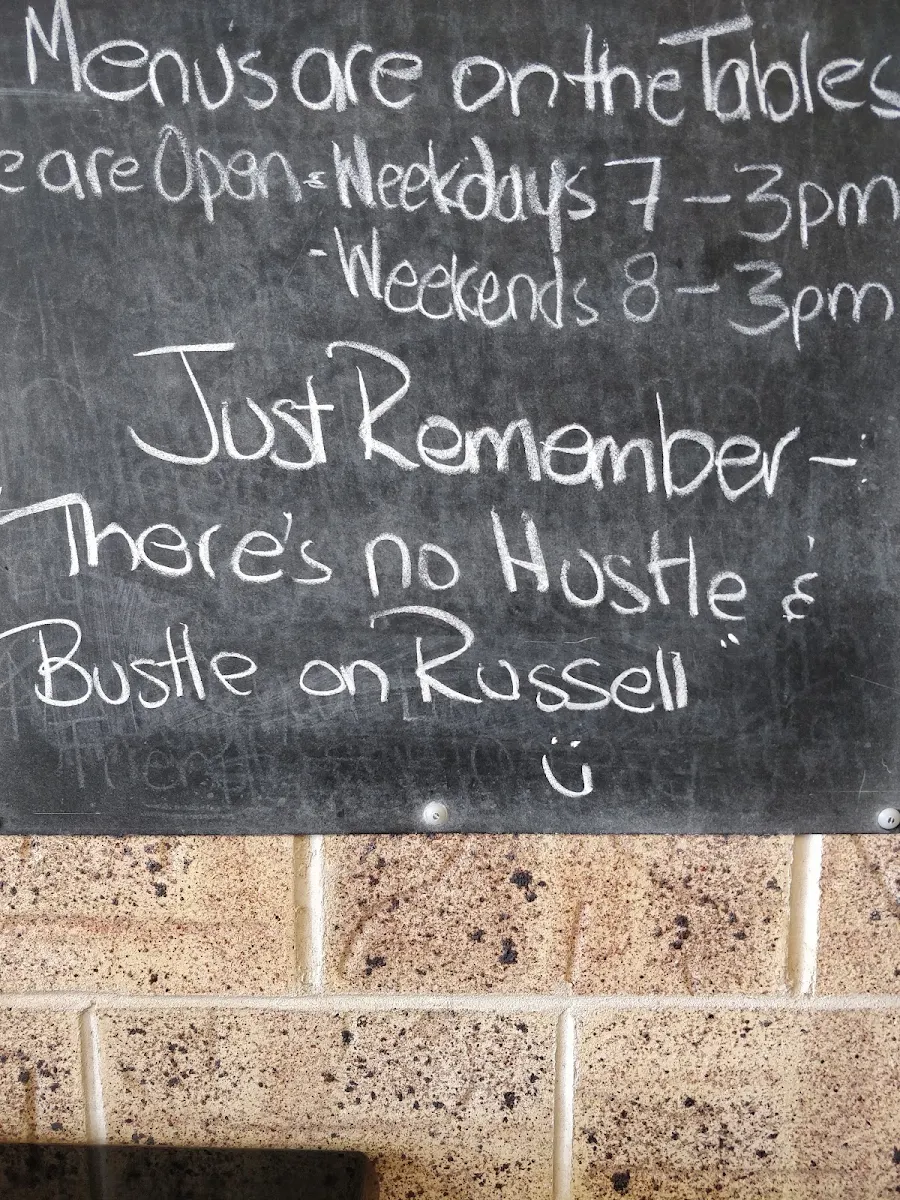 Menu's are on the Tables
e are Open - Weekdays 7 - 3pm
- Weekends 8 - 3pm
Just Remember - :
There's no Hustle &
Bustle on Russell"